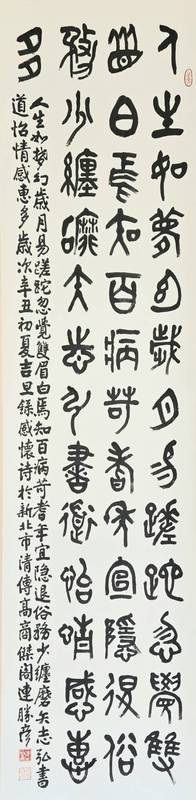 人生如夢幻歲月易蹉跎忽覺雙
眉白焉知百病苛耆年宜隱退俗
務少纏磨矢志弘書道怡情感惠
多
人生如夢幻歲月易蹉跎忽覺雙眉白焉知百病苛耆年宜隱退俗務少纏磨矢志弘書
道怡情感惠多歲次辛丑初夏吉旦錄感懷詩於新北市清傳高商傑閣連勝彥